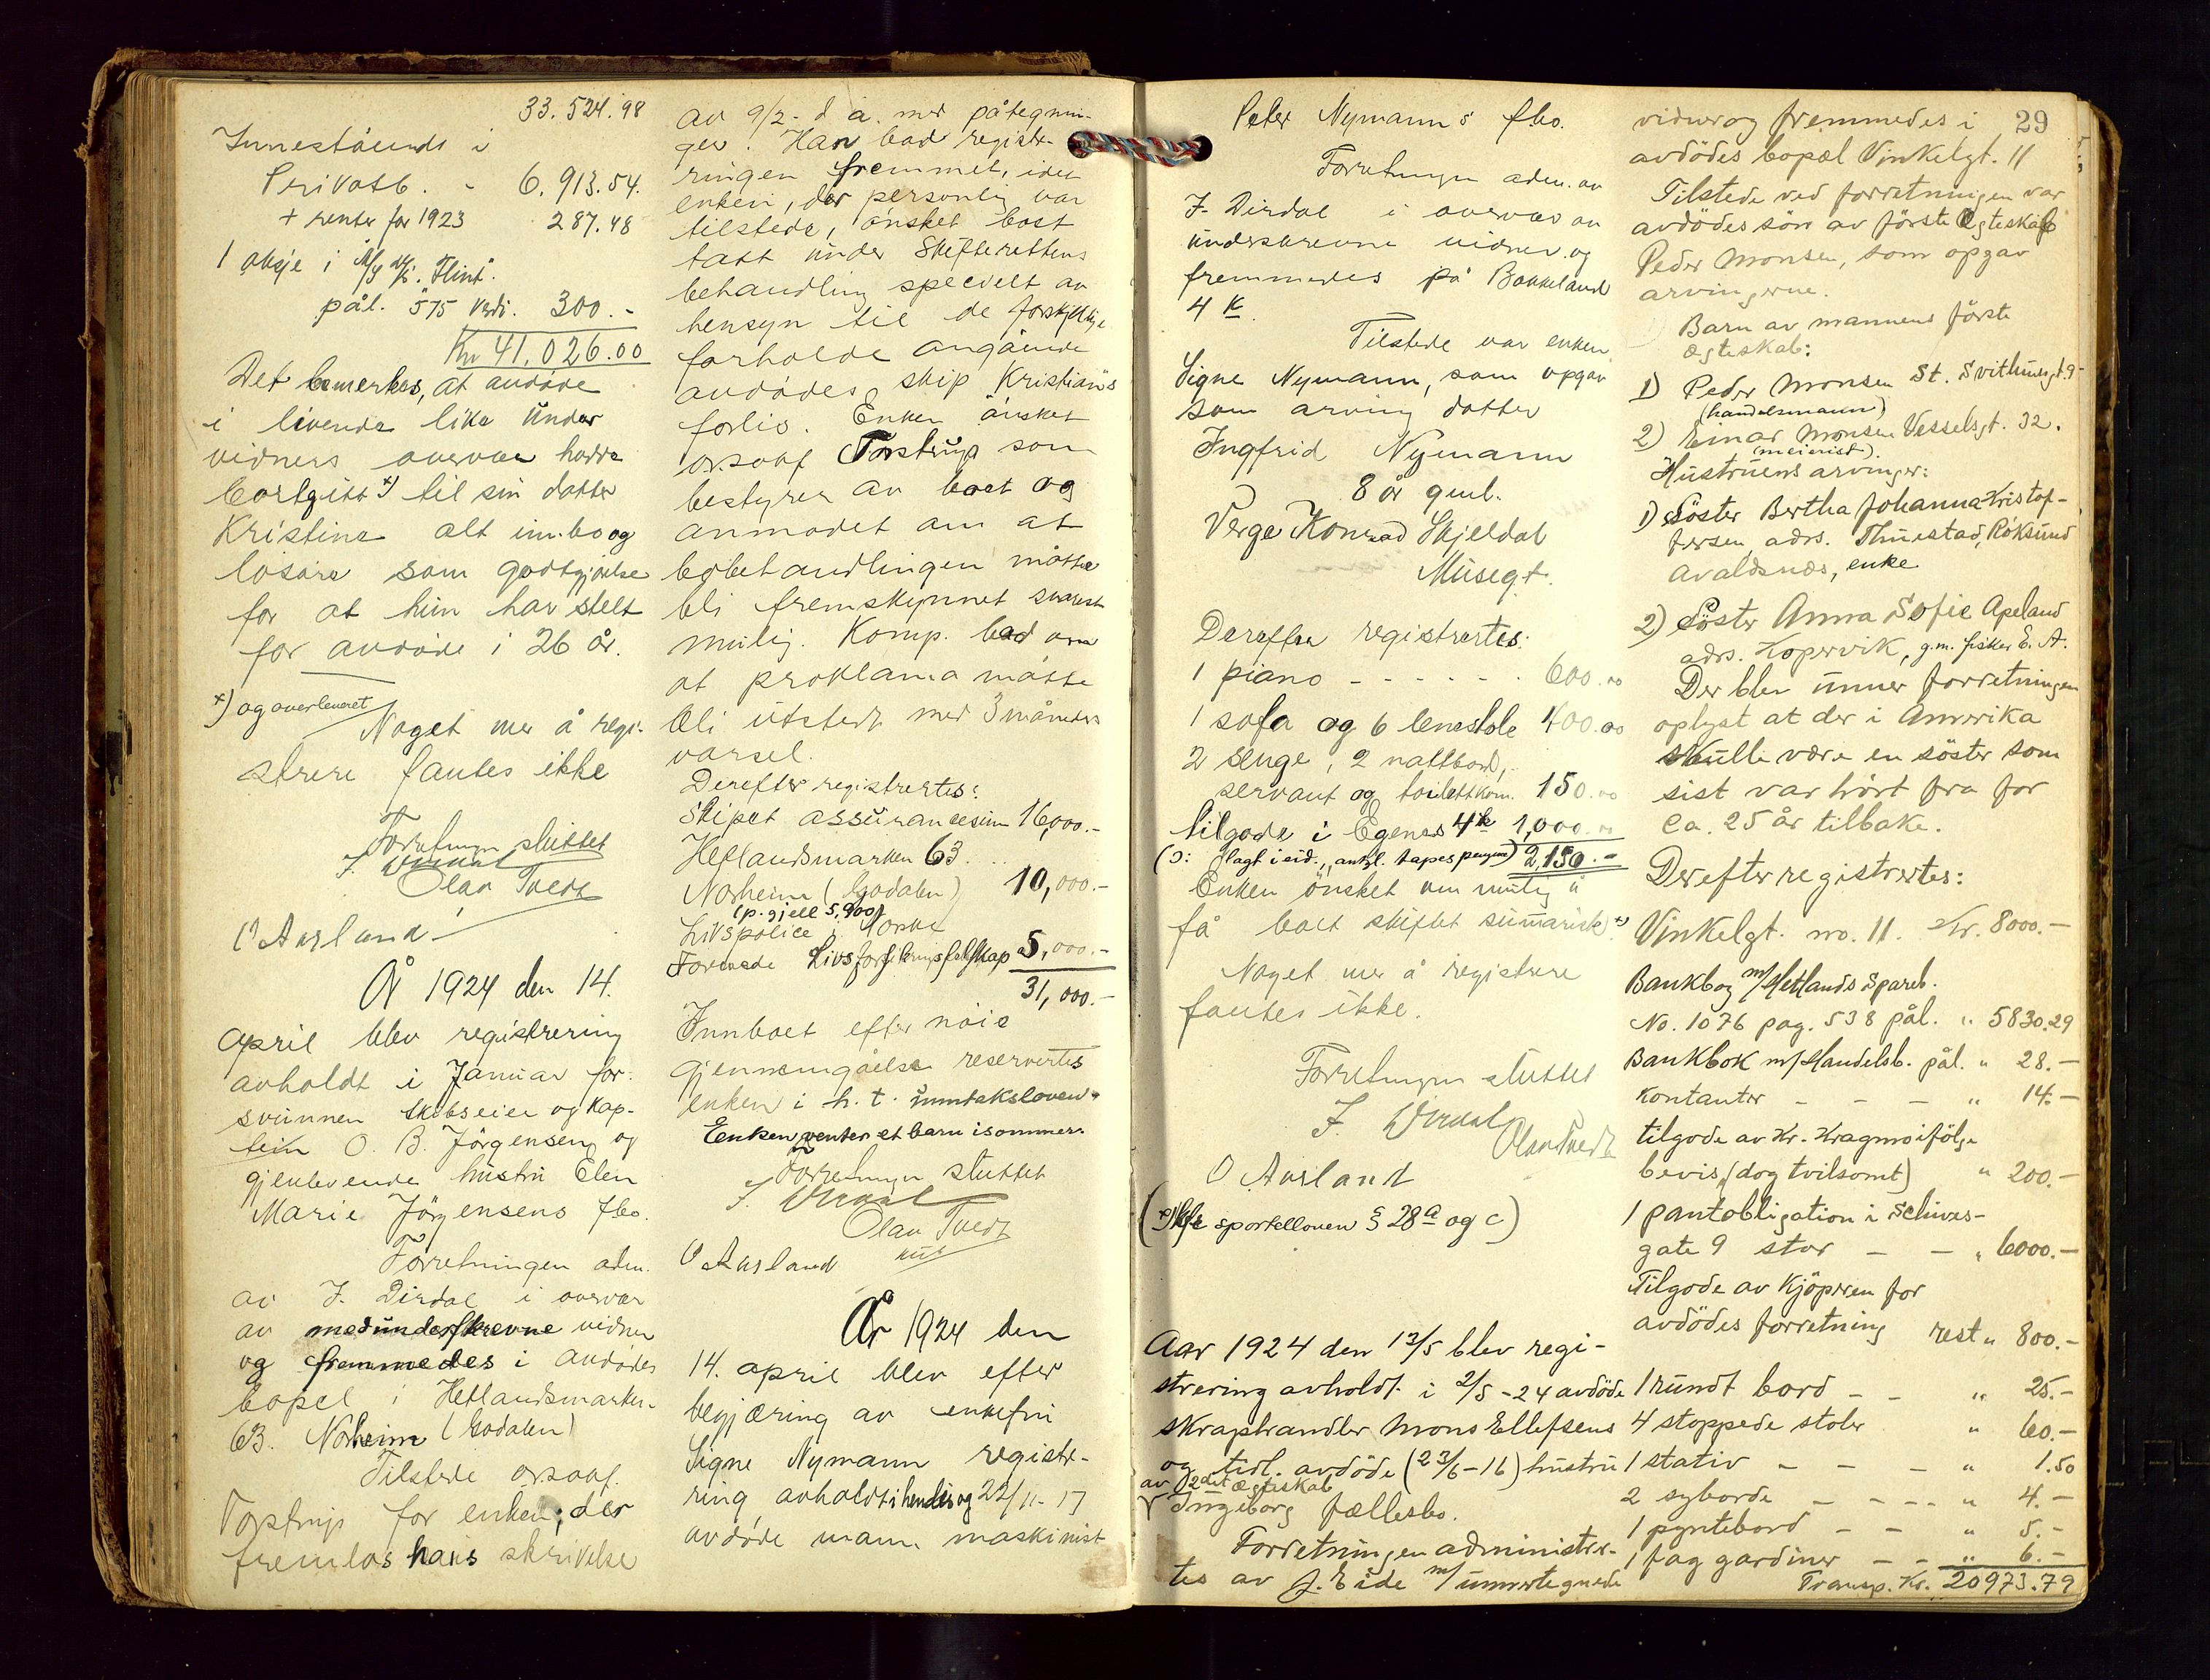 33.524.98
Innestående i
Privatb. - 6.913.54.
+ renter for 1923 287.48
1 aksje i M/S "Flint".
pål. 575 verdi. 300.-
Kr 41.026.00
Det bemerkes, at avdøde
i levende live under
vidners overvær hadde
bortgitt x) til sin datter
Kristine alt innbo og
løsøre som godtgjørelse
for at hun har stelt
for avdøde i 26 år.
x) og overleveret
Noget mer å regi-
strere fantes ikke
Forretningen sluttet
J. Dirdal
Olav Tvedt
O Aarland
År 1924 den 14.
april blev registrering
avholdt i Januar for-
svunnen skibseier og kap-
tein O. B. Jörgensen og
gjenlevende hustru Elen
Marie Jörgensens fbo.
Forretningen adm.
av J. Dirdal i overvær
av medunderskrevne vidner
og fremmedes i avdødes
bopel i Hetlandsmarken
63. Norheim (Godalen)
Tilstede orsakf.
Torstrup for enken, der
fremlas hans skrivelse
av 9/2- d å. med påtegnin-
ger. Han bad registre-
ringen fremmet, idet
enken, der personlig var
tilstede, ønsket boet
tatt under Skifterettens
behandling specielt av
hensyn til de forskjellige
forholde angående
avdødes skip Kristians
forlis. Enken ønsket
orsakf Torstrup som
bestyrer av boet og
anmodet om at
bobehandlingen måtte
bli fremskynnet snarest
mulig. Komp. bad om
at proklama måtte
bli utstedt med 3 måneders
varsel.
Derefter registrertes:
Skipet assurancesum 16,000.-
Hetlandsmarken 63. ..
Norheim (Godalen) 10,000.-
(p. gjeld 5,900)
Livspolice i Norske
Forenede Livsforsikringsselskap 5,000.-
31,000.-
Innboet efter nøie
gjennemgåelse reservertes
enken i h. t. unntaksloven.
Enken venter et barn i sommer.
Forretningen sluttet
J. Dirdal
Olav Tvedt
O Aarland
År 1924 den
14. april blev efter
begjæring av enkefru
Signe Nymann registre-
ring avholdt i hendes og 22/11-17
avdøde mann maskinist
Peter Nymanns fbo.
Forretningen adm. av
J. Dirdal i overvær av
underskrevne vidner og
fremmedes på Bakkeland
4 k.
Tilstede var enken
Signe Nymann, som opgav
som arving datter
Ingfrid Nymann
8 år gml.
Verge Konrad Skjeldal
Musegt.
Derefter registrertes:
1 piano - - - - - - 600.00
1 sofa og 6 lenestole 400.00
2 senge, 2 nattbord,
servant og toilettkom. 150.00
tilgode i Egenes 4 k 1,000.00
2,150.-
Enken ønsket om mulig å
få boet skiftet summarisk x)
Noget mer å registrere
fantes ikke.
Forretningen sluttet
J. Dirdal
Olav Tvedt
O Aarland
(x) sportelloven § 28 a og c)
Aar 1924 den 13/5 blev regi-
strering avholdt i 2/5-24 avdöde
skraphandler Mons Ellefsens
og tidl. avdöde (23/6-16) hustru
av 2det ægteskab
Ingeborg fællesbo.
Forretningen administrer-
tes av J. Eide m/ unertegnede
29
vidner og fremmedes i
avdödes bopæl Vinkelgt. 11
Tilstede ved forretningen var
avdödes sön av förste Ægteskab
Peder Monsen, som opgav
arvingerne.
Barn av mannens förste
ægteskab:
1) Peder Monsen St. Svithunsgt. 9-
(handelsmann)
2) Einar Monsen Vesselsgt. 32.
(meierist).
Hustruens arvinger:
1) Söster Bertha Johanna Kristof-
fersen adrs. Thuestad, Röksund
Avaldsnæs, enke
2) Söster Anna Sofie Apeland
adrs. Kopervik, g.m. fisker E. A.
Der blev unner forretningen
oplyst at der i Amerika
skulle være en söster som
sist var hört fra for
ca. 25 år tilbake.
Derefter registrertes:
Vinkelgt. no. 11. Kr. 8000.-
Bankbog m/Hetlands Spareb.
No. 1076 pag. 538 pål. " 5830.29
Bankbok m/Handelsb. pål. " 28.-
Kontanter - - - " 14.-
tilgode av Kr. Kragmo ifölge
bevis (dog tvilsomt) " 200.-
1 pantobligation i Schives-
gate 9 stor - - " 6000.-
Tilgode av Kjöperen for
avdödes forretning rest " 800.-
1 rundt bord - - " 25.-
4 stoppede stoler " 60.-
1 stativ - - - " 1.50
2 syborde - - - - " 4.-
1 pyntebord - - " 5.-
1 fag gardiner - - " 6.-
Transp. Kr. 20973.79